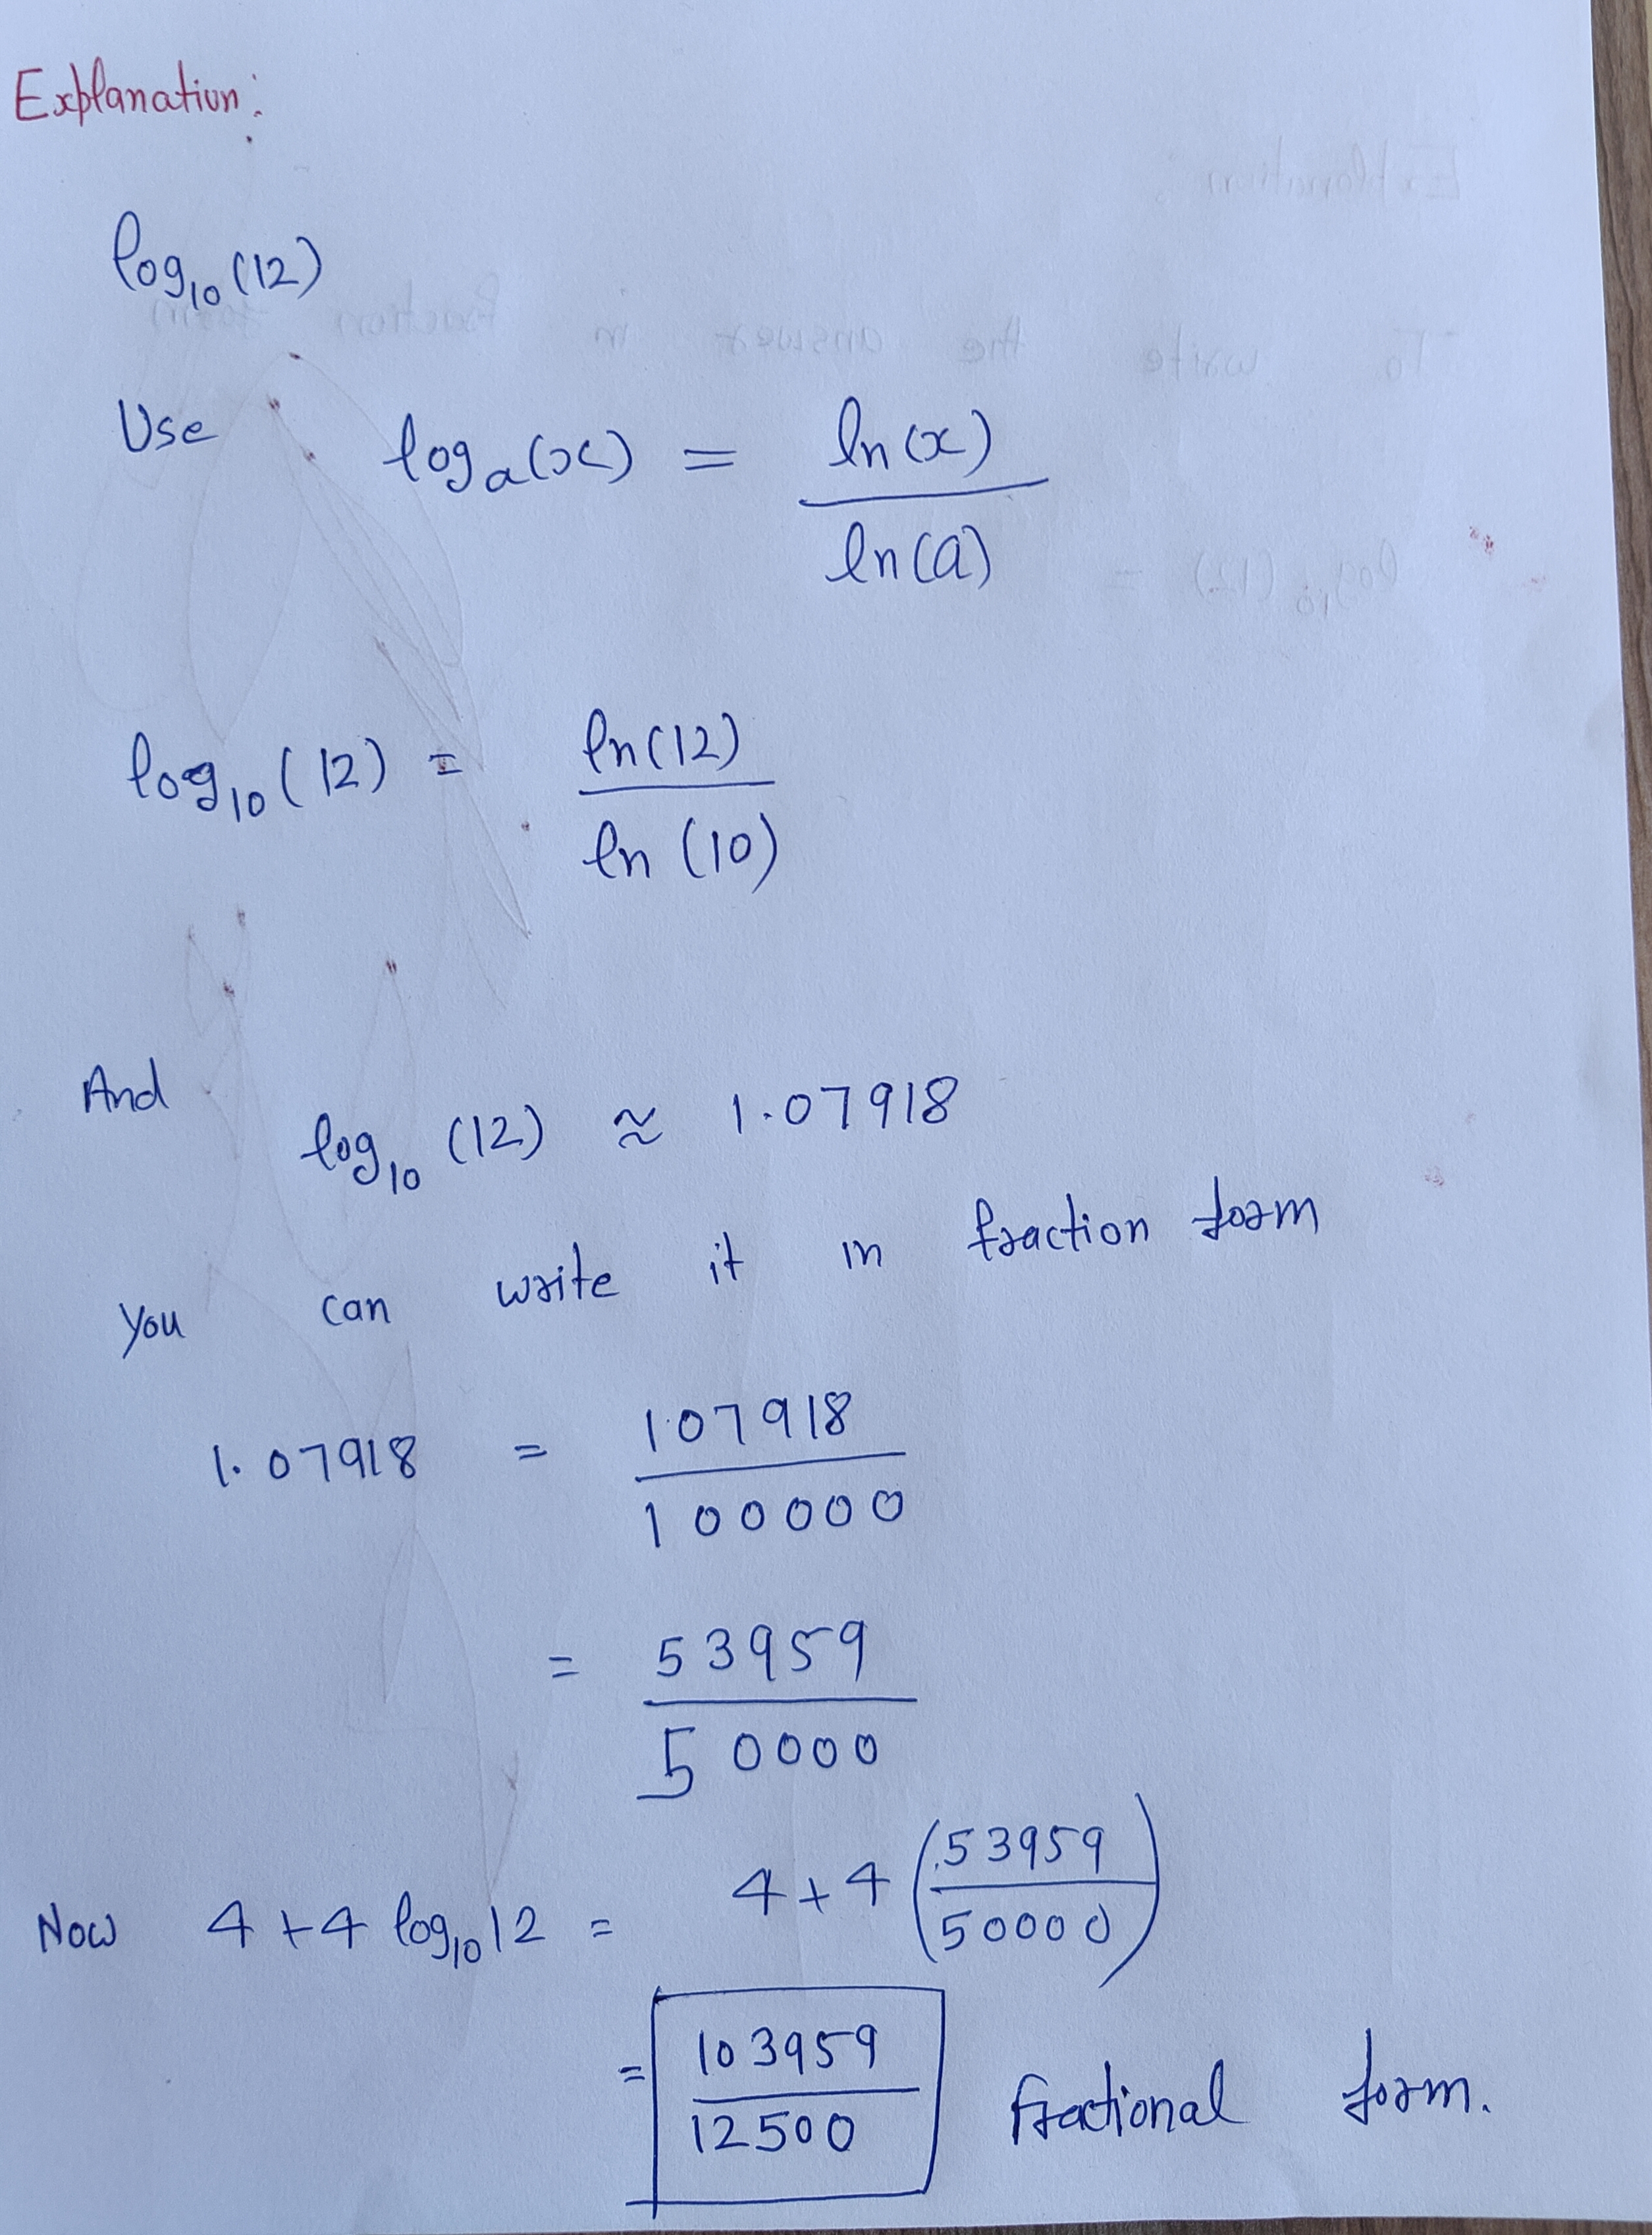 Explanation:
log₁₀(12)
Use logₐ(x) = ln(x) / ln(a)
log₁₀(12) = ln(12) / ln(10)
And log₁₀(12) ≈ 1.07918
You can write it in fraction form
1.07918 = 107918 / 100000
= 53959 / 50000
Now 4+4 log₁₀12 = 4+4 (53959 / 50000)
= 103959 / 12500 fractional form.